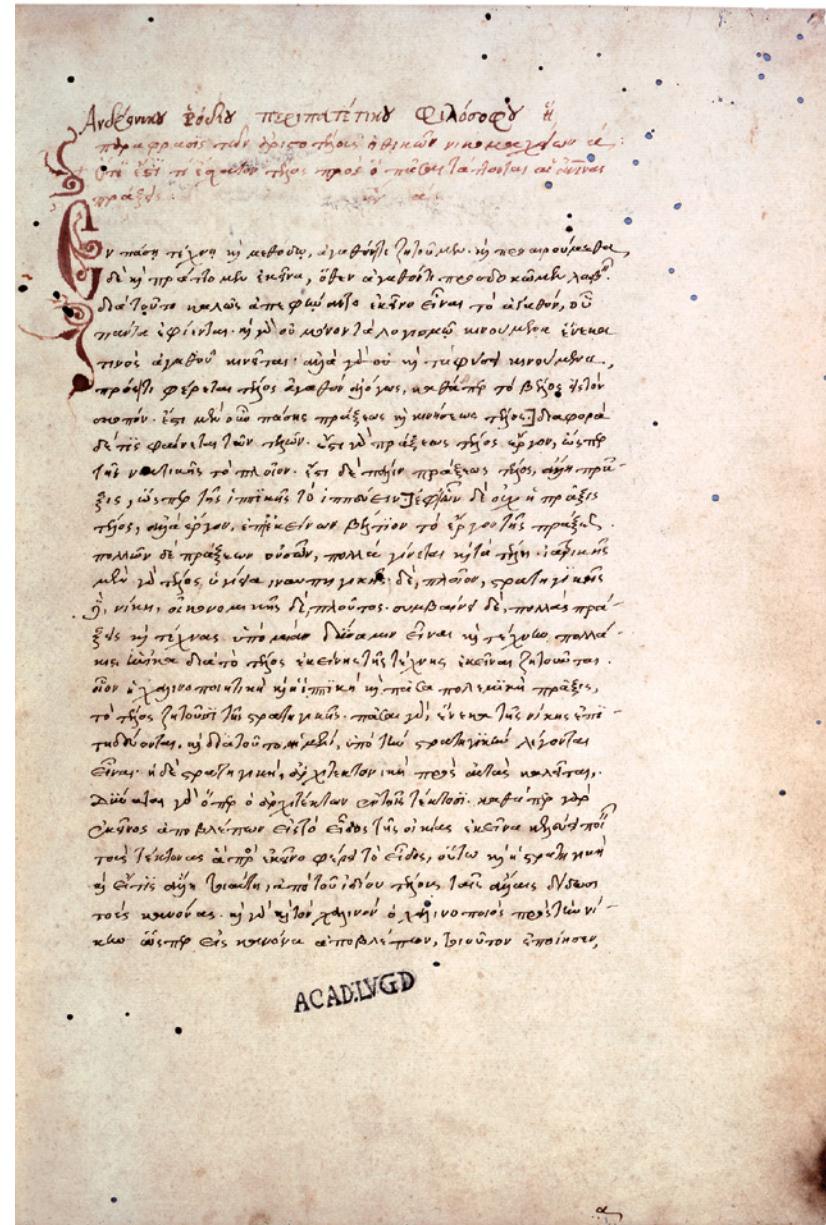 Ἀνδρονίκου Ῥοδίου περιπατετικοῦ Φιλοσόφου ἡ
παράφρασις τῶν ἀριστοτέλους ἠθικῶν νικομαχείων
ὅτι ἐστὶ τὶ ἔσχατον τέλος πρὸς ὃ πᾶσαι
πράξεις
Ἐν πάσῃ τέχνῃ καὶ μεθόδω, ἀγαθόν τι ζητοῦμεν. καὶ προαιρούμεθα
δὲ καὶ πράττομεν ἐκεῖνα, ὅθεν ἀγαθόν τι προσδοκῶμεν λαβεῖν.
διὰ τοῦτο καλῶς ἀπεφήναντο ἐκεῖνο εἶναι τὸ ἀγαθόν, οὗ
πάντα ἐφίενται. καὶ γὰρ οὐ μόνον τὰ λογισμῷ κινούμενα ἕνεκα
τινὸς ἀγαθοῦ κινεῖται. ἀλλὰ γὰρ οὐ καὶ τὰ φύσει κινούμενα,
πρός τι φέρεται τέλος ἀγαθὸν ἀλόγως, καθάπερ τὸ βέλος ἐπὶ τὸν
σκοπόν. ἔστι μὲν οὖν πάσης πράξεως καὶ κινήσεως τέλος διαφορὰ
δέ τις φαίνεται τῶν τελῶν. ἔστι γὰρ πράξεως τέλος ἔργον, ὥσπερ
τῆς ναυτικῆς τὸ πλοῖον. ἔστι δὲ πάλιν πράξεως τέλος, ἄλλη πρᾶ-
ξις, ὥσπερ τῆς ἱππϊκῆς τὸ ἱππεύειν ἐφ' ὧν δὲ οὐχ ἡ πρᾶξις
τέλος, ἀλλὰ ἔργον, ἐπ' ἐκείνων βέλτϊον τὸ ἔργον τῆς πράξεως.
πολλῶν δὲ πράξεων οὐσῶν, πολλὰ γίνεται καὶ τὰ τέλη. ἰατρικῆς
μὲν γὰρ τέλος ὑγίεια, ναυπηγικῆς δὲ, πλοῖον, στρατηγικῆς
δὲ, νίκη, οἰκονομικῆς δὲ, πλοῦτος. συμβαίνει δὲ, πολλὰς πρά-
ξεις καὶ τέχνας ὑπὸ μίαν δύναμιν εἶναι καὶ τέχνην πολλά-
κις. διὰ τὸ τέλος ἐκείνης τῆς τέχνης ἐκεῖναι ζητοῦνται.
οἷον ἡ χαλινοποιητικὴ καὶ ἡ ἱππϊκὴ καὶ πᾶσα πολεμικὴ πρᾶξις,
τὸ τέλος ζητοῦσι τῆς στρατηγικῆς. πᾶσαι γὰρ, ἕνεκα τῆς νίκης ἐπι
τηδεύονται, καὶ διὰ τοῦτο ὑπὸ τὴν στρατηγικὴν λέγονται
εἶναι. ἡ δὲ στρατηγικὴ, ἀρχιτεκτονικὴ πρὸς αὐτὰς καλεῖται.
δύναται γὰρ ὅπερ ὁ ἀρχιτέκτων ἐν τοῖς τέκτοσι. καθάπερ γὰρ
ἐκεῖνος ἀποβλέπων εἰς τὸ εἶδος τῆς οἰκίας ἐκεῖνα κελεύει ποιεῖν
τοὺς τέκτονας ἃ πρὸς ἐκεῖνο φέρει τὸ εἶδος, οὕτω καὶ ἡ στρατηγικὴ
καὶ εἴ τις ἄλλη τοιαύτη, ἀπὸ τοῦ ἰδίου τέλους ταῖς ἄλλαις δίδωσι
τοὺς κανόνας. καὶ γὰρ καὶ τὸν χαλινὸν ὁ χαλινοποιὸς πρὸς τὴν νί-
κην ὥσπερ εἰς κανόνα ἀποβλέπων, τοιοῦτον ἐποίησεν,
ACAD.LVGD
α